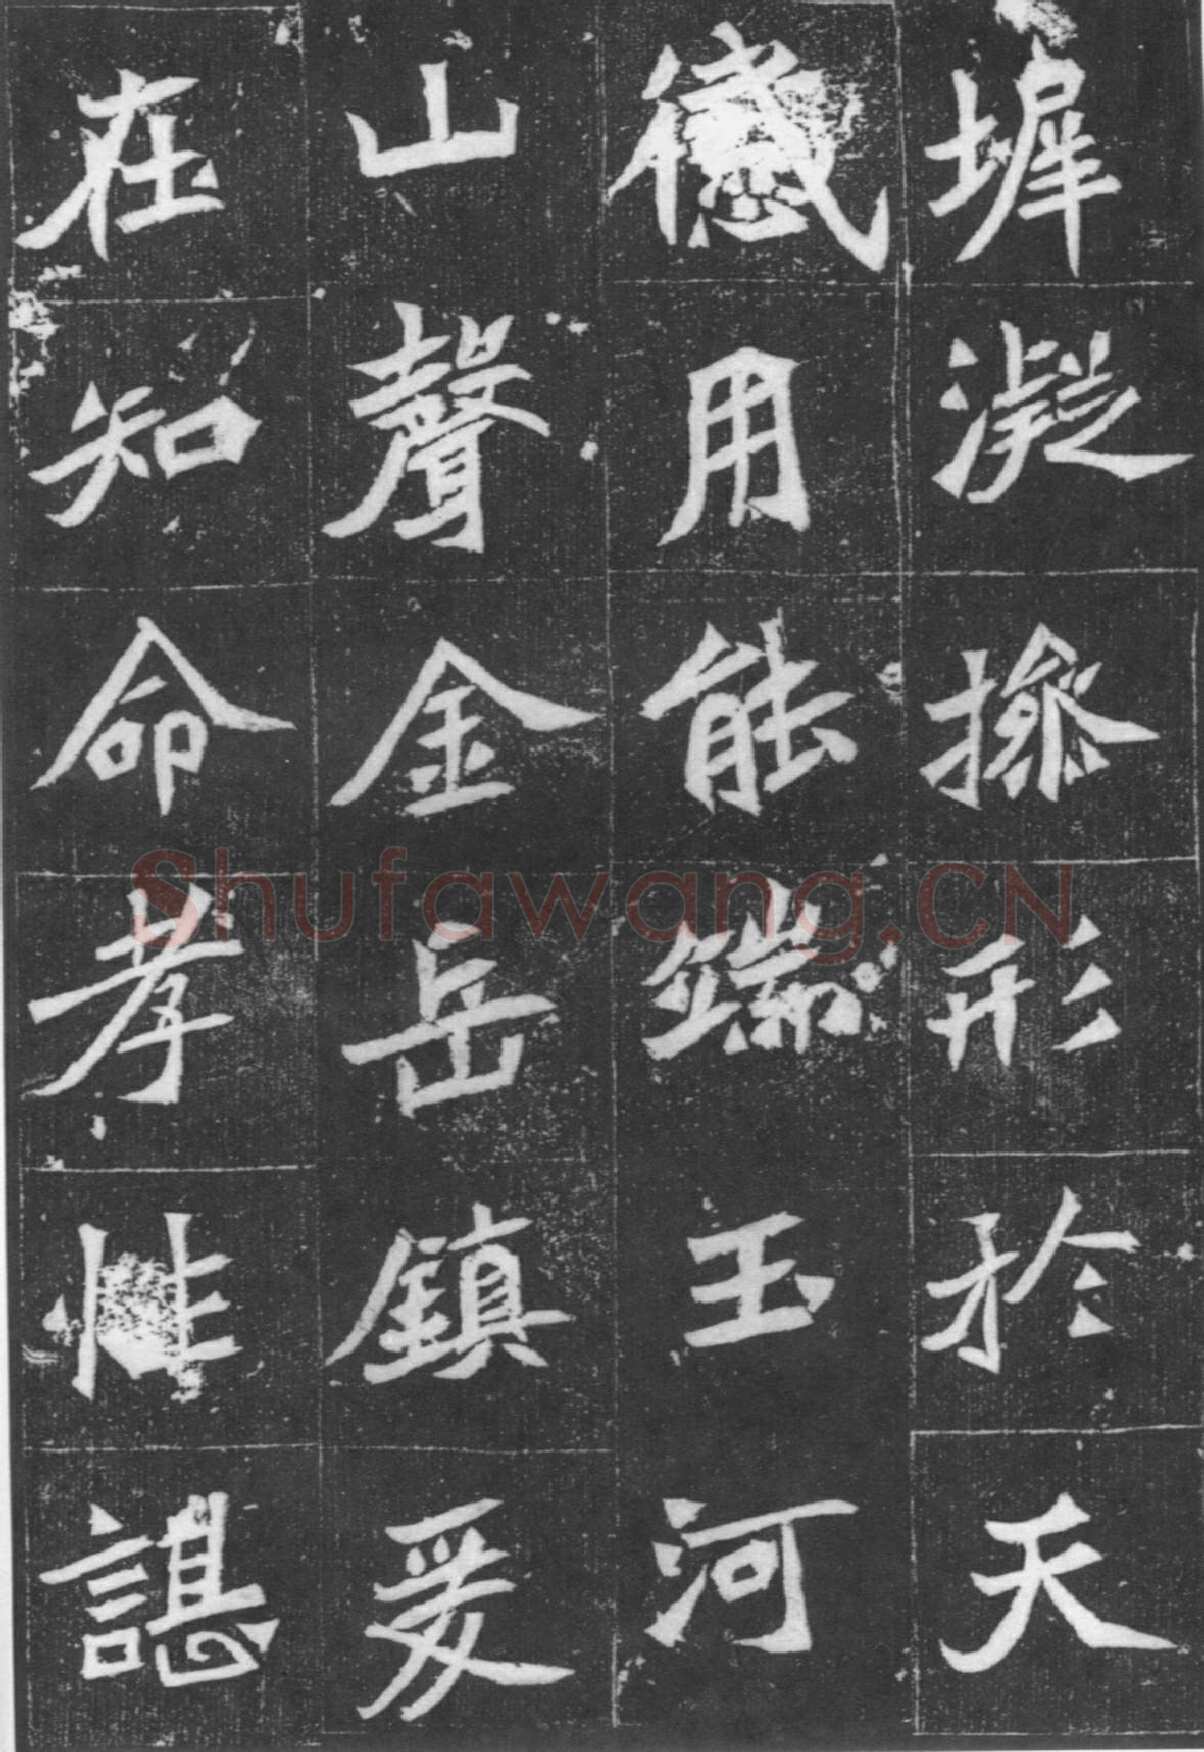 墀凝摻形於天
用能端玉河
山聲金岳鎮爰
在知命孝性諶
Shufawang.CN